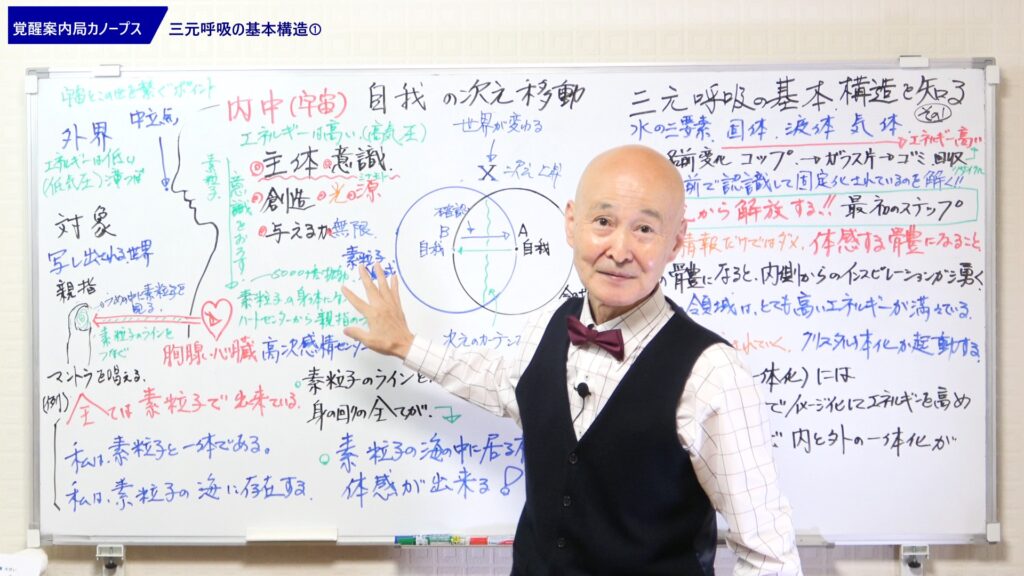 覚醒案内局カノープス
三元呼吸の基本構造①
宇宙とこの世を繋ぐポイント
外界
中立点
エネルギーは低い
(低気圧)
対象
写し出される世界
親指
素粒子のラインを
つなぐ
マントラを唱える。
(例)
全ては素粒子で出来ている。
私は、素粒子と一体である。
私は、素粒子の海に存在する。
内中(宇宙)
エネルギーは高い(高気圧)
主体の意識
創造
光の源
与える力
無限
素粒子
意識をおろす
素粒子の身体に
ハートセンターから親指の
胸腺・心臓
高次感情センター
素粒子のラインと
身の回りの全てが、
素粒子の海の中に居る
体感が出来る!
自我の次元移動
世界が変わる
B
自我
A
自我
次元のカーテン
三元呼吸の基本構造を知る
その1
水の三要素
固体、液体、気体
エネルギー高い
名前変化
コップ→ガラス片→ゴミ
回収
リサイクル
前で認識して固定化されているのを解く!!
から解放する!!
最初のステップ
情報だけではダメ、体感する骨董になること
の骨董になると、内側からのインスピレーションが湧く
領域は、とても高いエネルギーが満ちている。
されていく、クリスタル体化が起動する。
体化)には
でイメージ化してエネルギーを高め
で内と外の一体化が